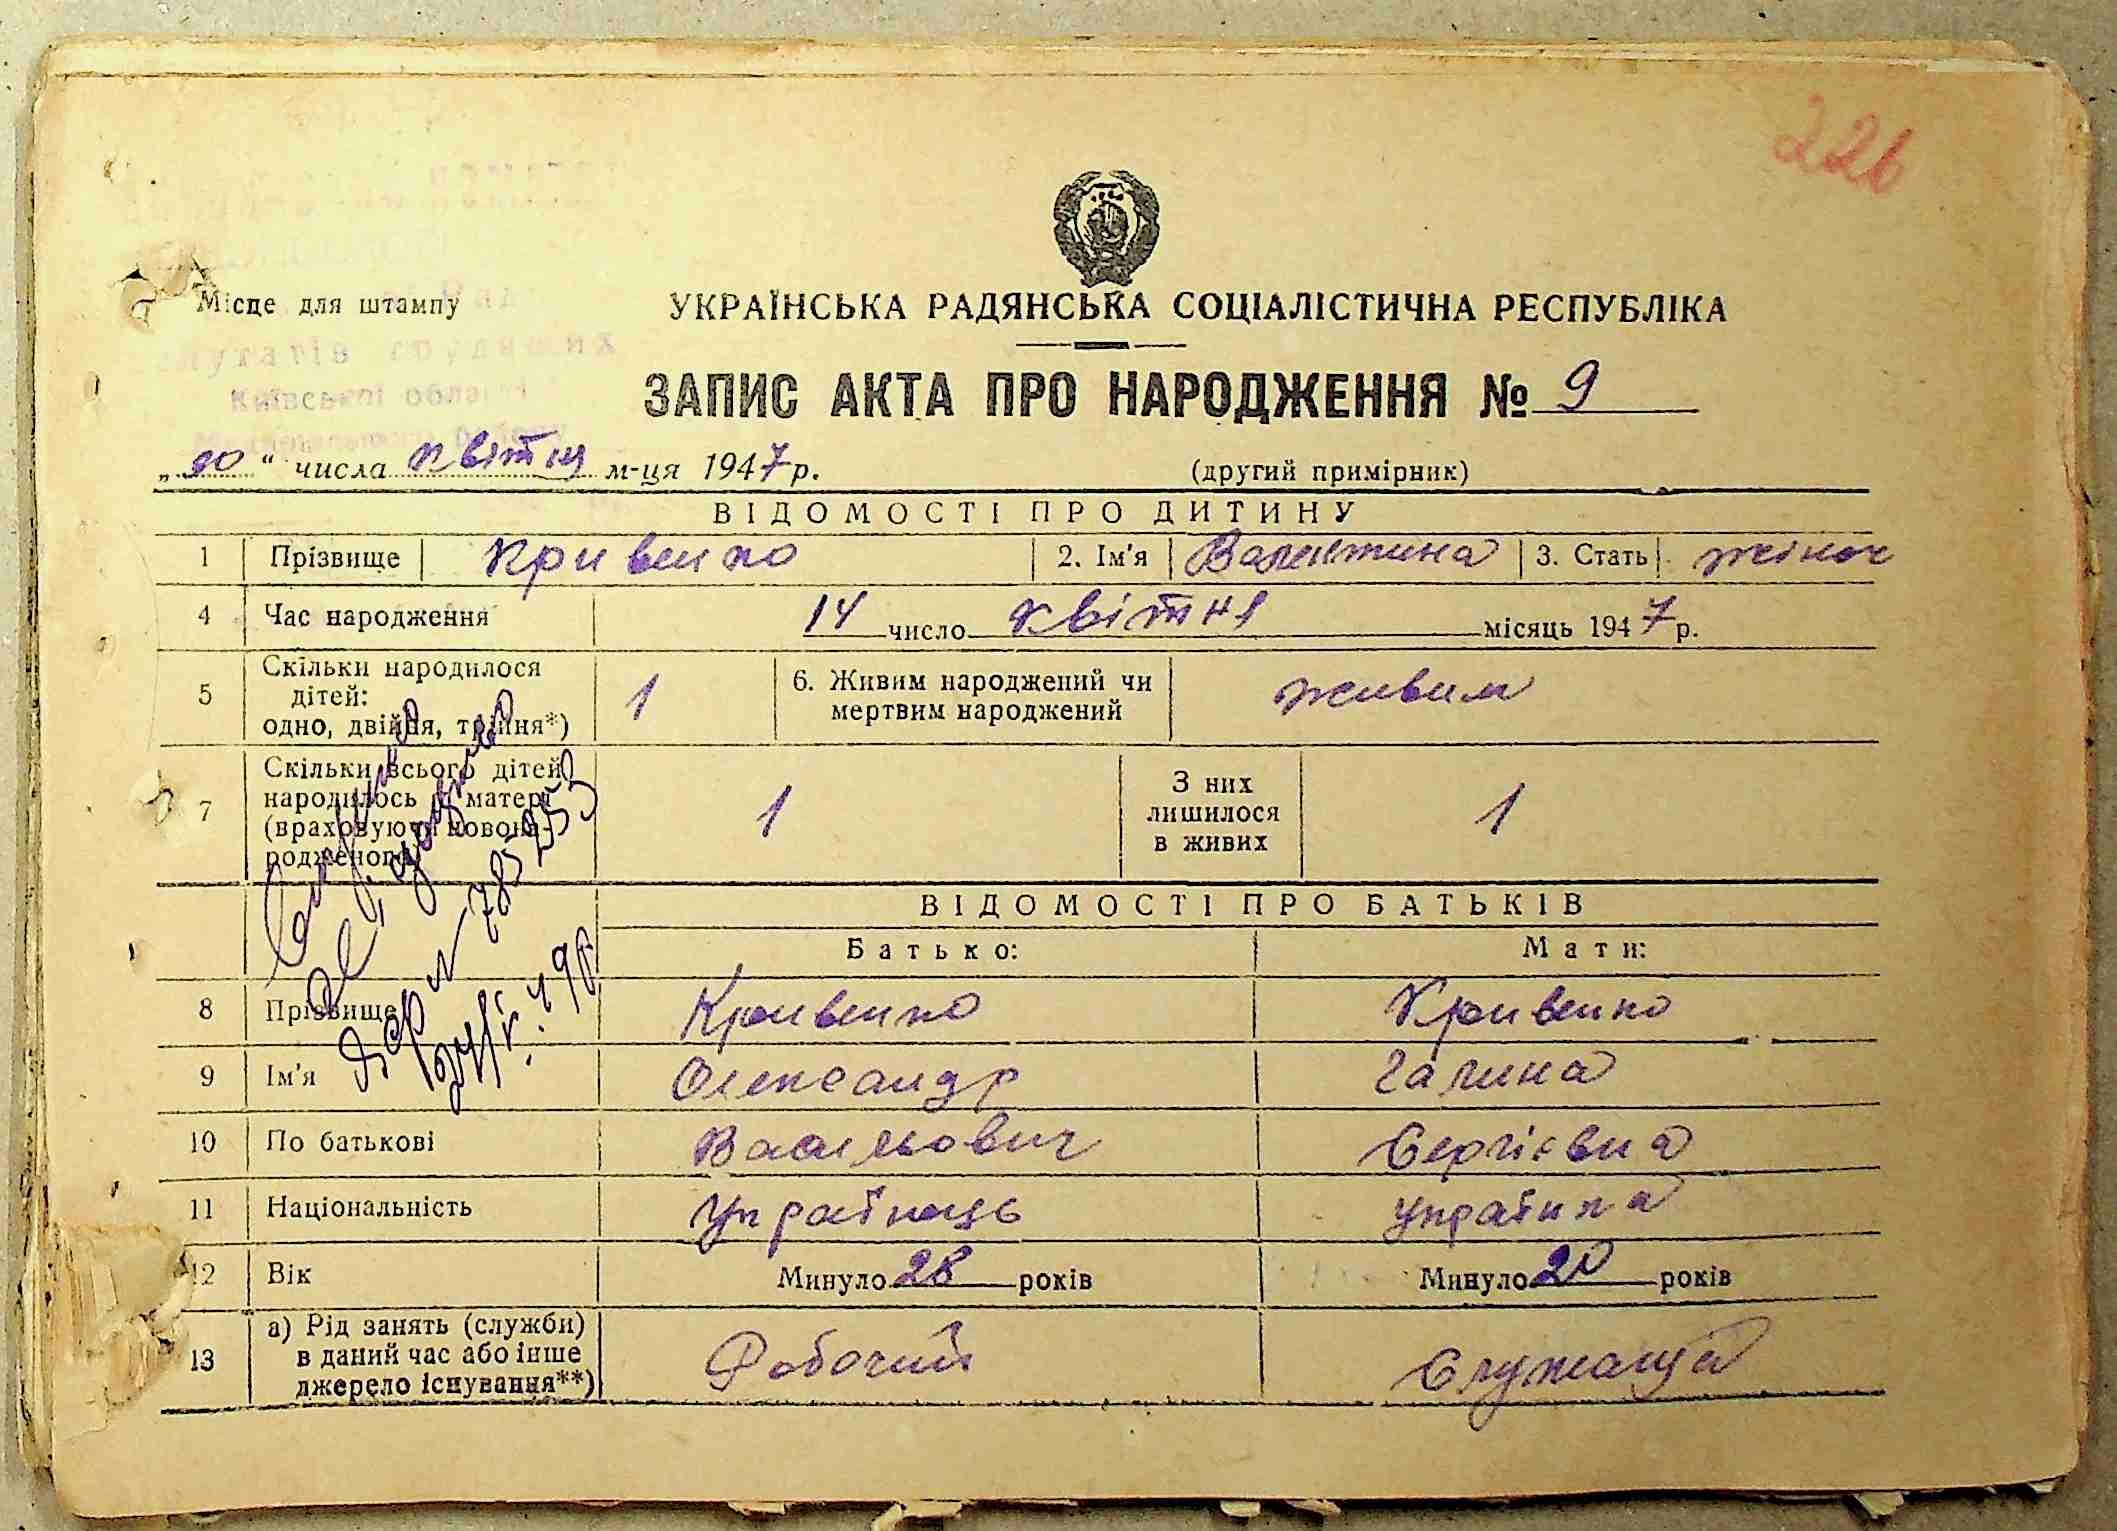 226
Місце для штампу
УКРАЇНСЬКА РАДЯНСЬКА СОЦІАЛІСТИЧНА РЕСПУБЛІКА
депутатів трудящих
Київської області
ЗАПИС АКТА ПРО НАРОДЖЕННЯ № 9
„ 20 “ числа квітня м-ця 1947 р. (другий примірник)
ВІДОМОСТІ ПРО ДИТИНУ
1 Прізвище Кривенко 2. Ім'я Валентина 3. Стать жіноч
4 Час народження 14 число квітня місяць 1947 р.
5 Скільки народилося дітей: одно, двійня, трійня*) 1 6. Живим народжений чи мертвим народжений живим
7 Скільки всього дітей народилось у матері (враховуючи новона-родженого) 1 З них лишилося в живих 1
ВІДОМОСТІ ПРО БАТЬКІВ
Батько: Мати:
8 Прізвище Кривенко Кривенко
9 Ім'я Олександр Галина
10 По батькові Васильович Сергієвна
11 Національність Українець Українка
12 Вік Минуло 28 років Минуло 20 років
13 а) Рід занять (служби) в даний час або інше джерело існування**) Робочий Служаща